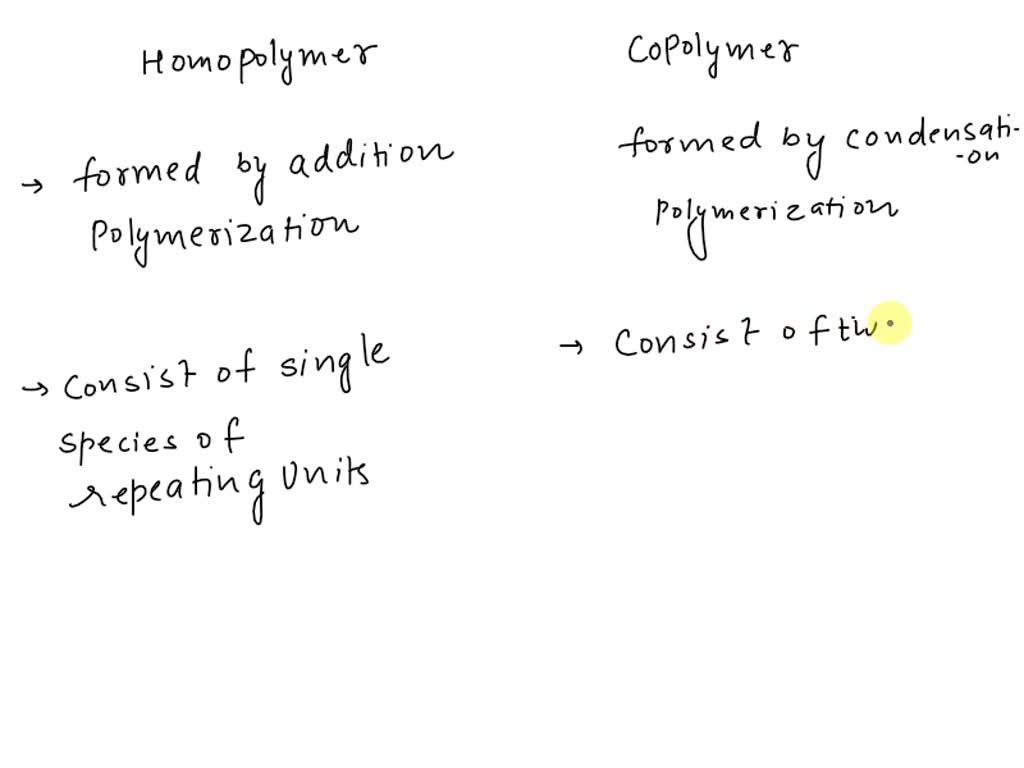 Homopolymer
Copolymer
→ formed by addition
Polymerization
formed by condensati-
-on
Polymerization
→ Consist of single
species of
repeating Units
→ Consist of tw